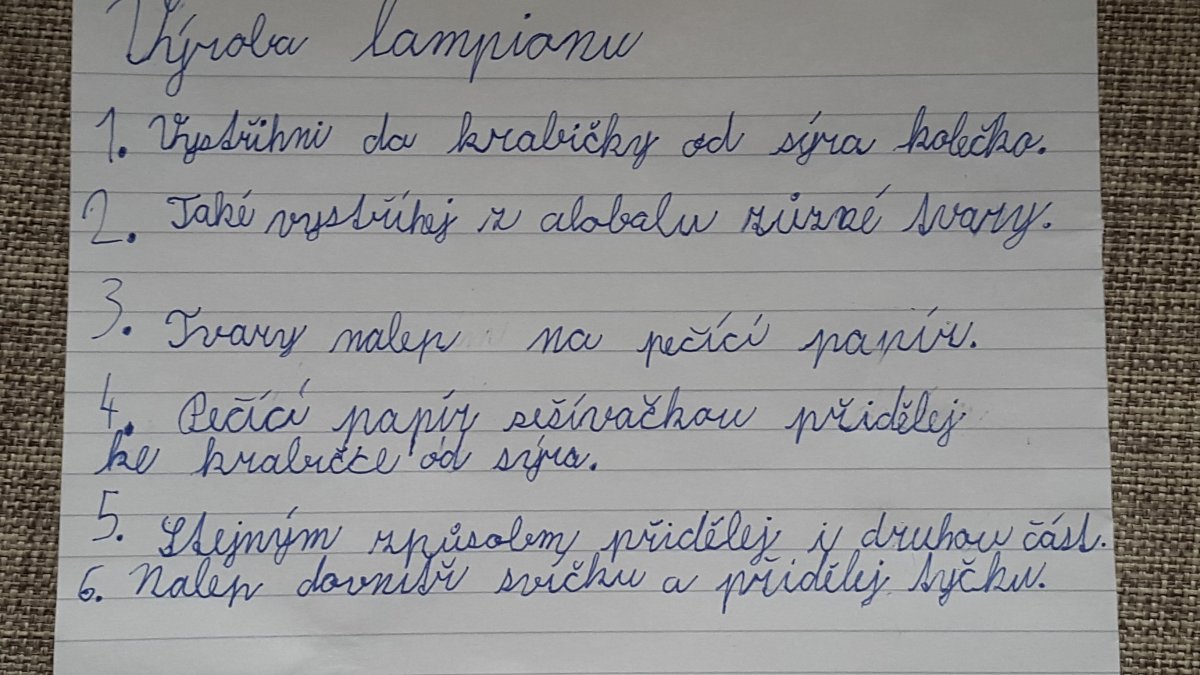 Výroba lampionu
1. Vystřihni do krabičky od sýra kolečko.
2. Také vystříhej z alobalu různé tvary.
3. Tvary nalep na pečící papír.
4. Pečící papír sešívačkou přidělej
ke krabičce od sýra.
5. Stejným způsobem přidělej i druhou část.
6. Nalep dovnitř svíčku a přidělej tyčku.